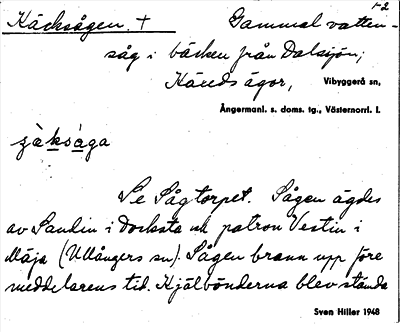 1-2
Käcksågen. + Gammal vatten-
såg i bäcken från Dalsjön;
Häreds ägor, Vibyggerå sn,
Ångermanl. s. doms. tg., Västernorrl. l.
Se Sågtorpet. Sågen ägdes
av Sandin i Docksta och patron Vestin i
Mäja (Ullångers sn). Sågen brann upp före
meddelarens tid. Hjälbönderna blev stånda
Sven Hiller 1948